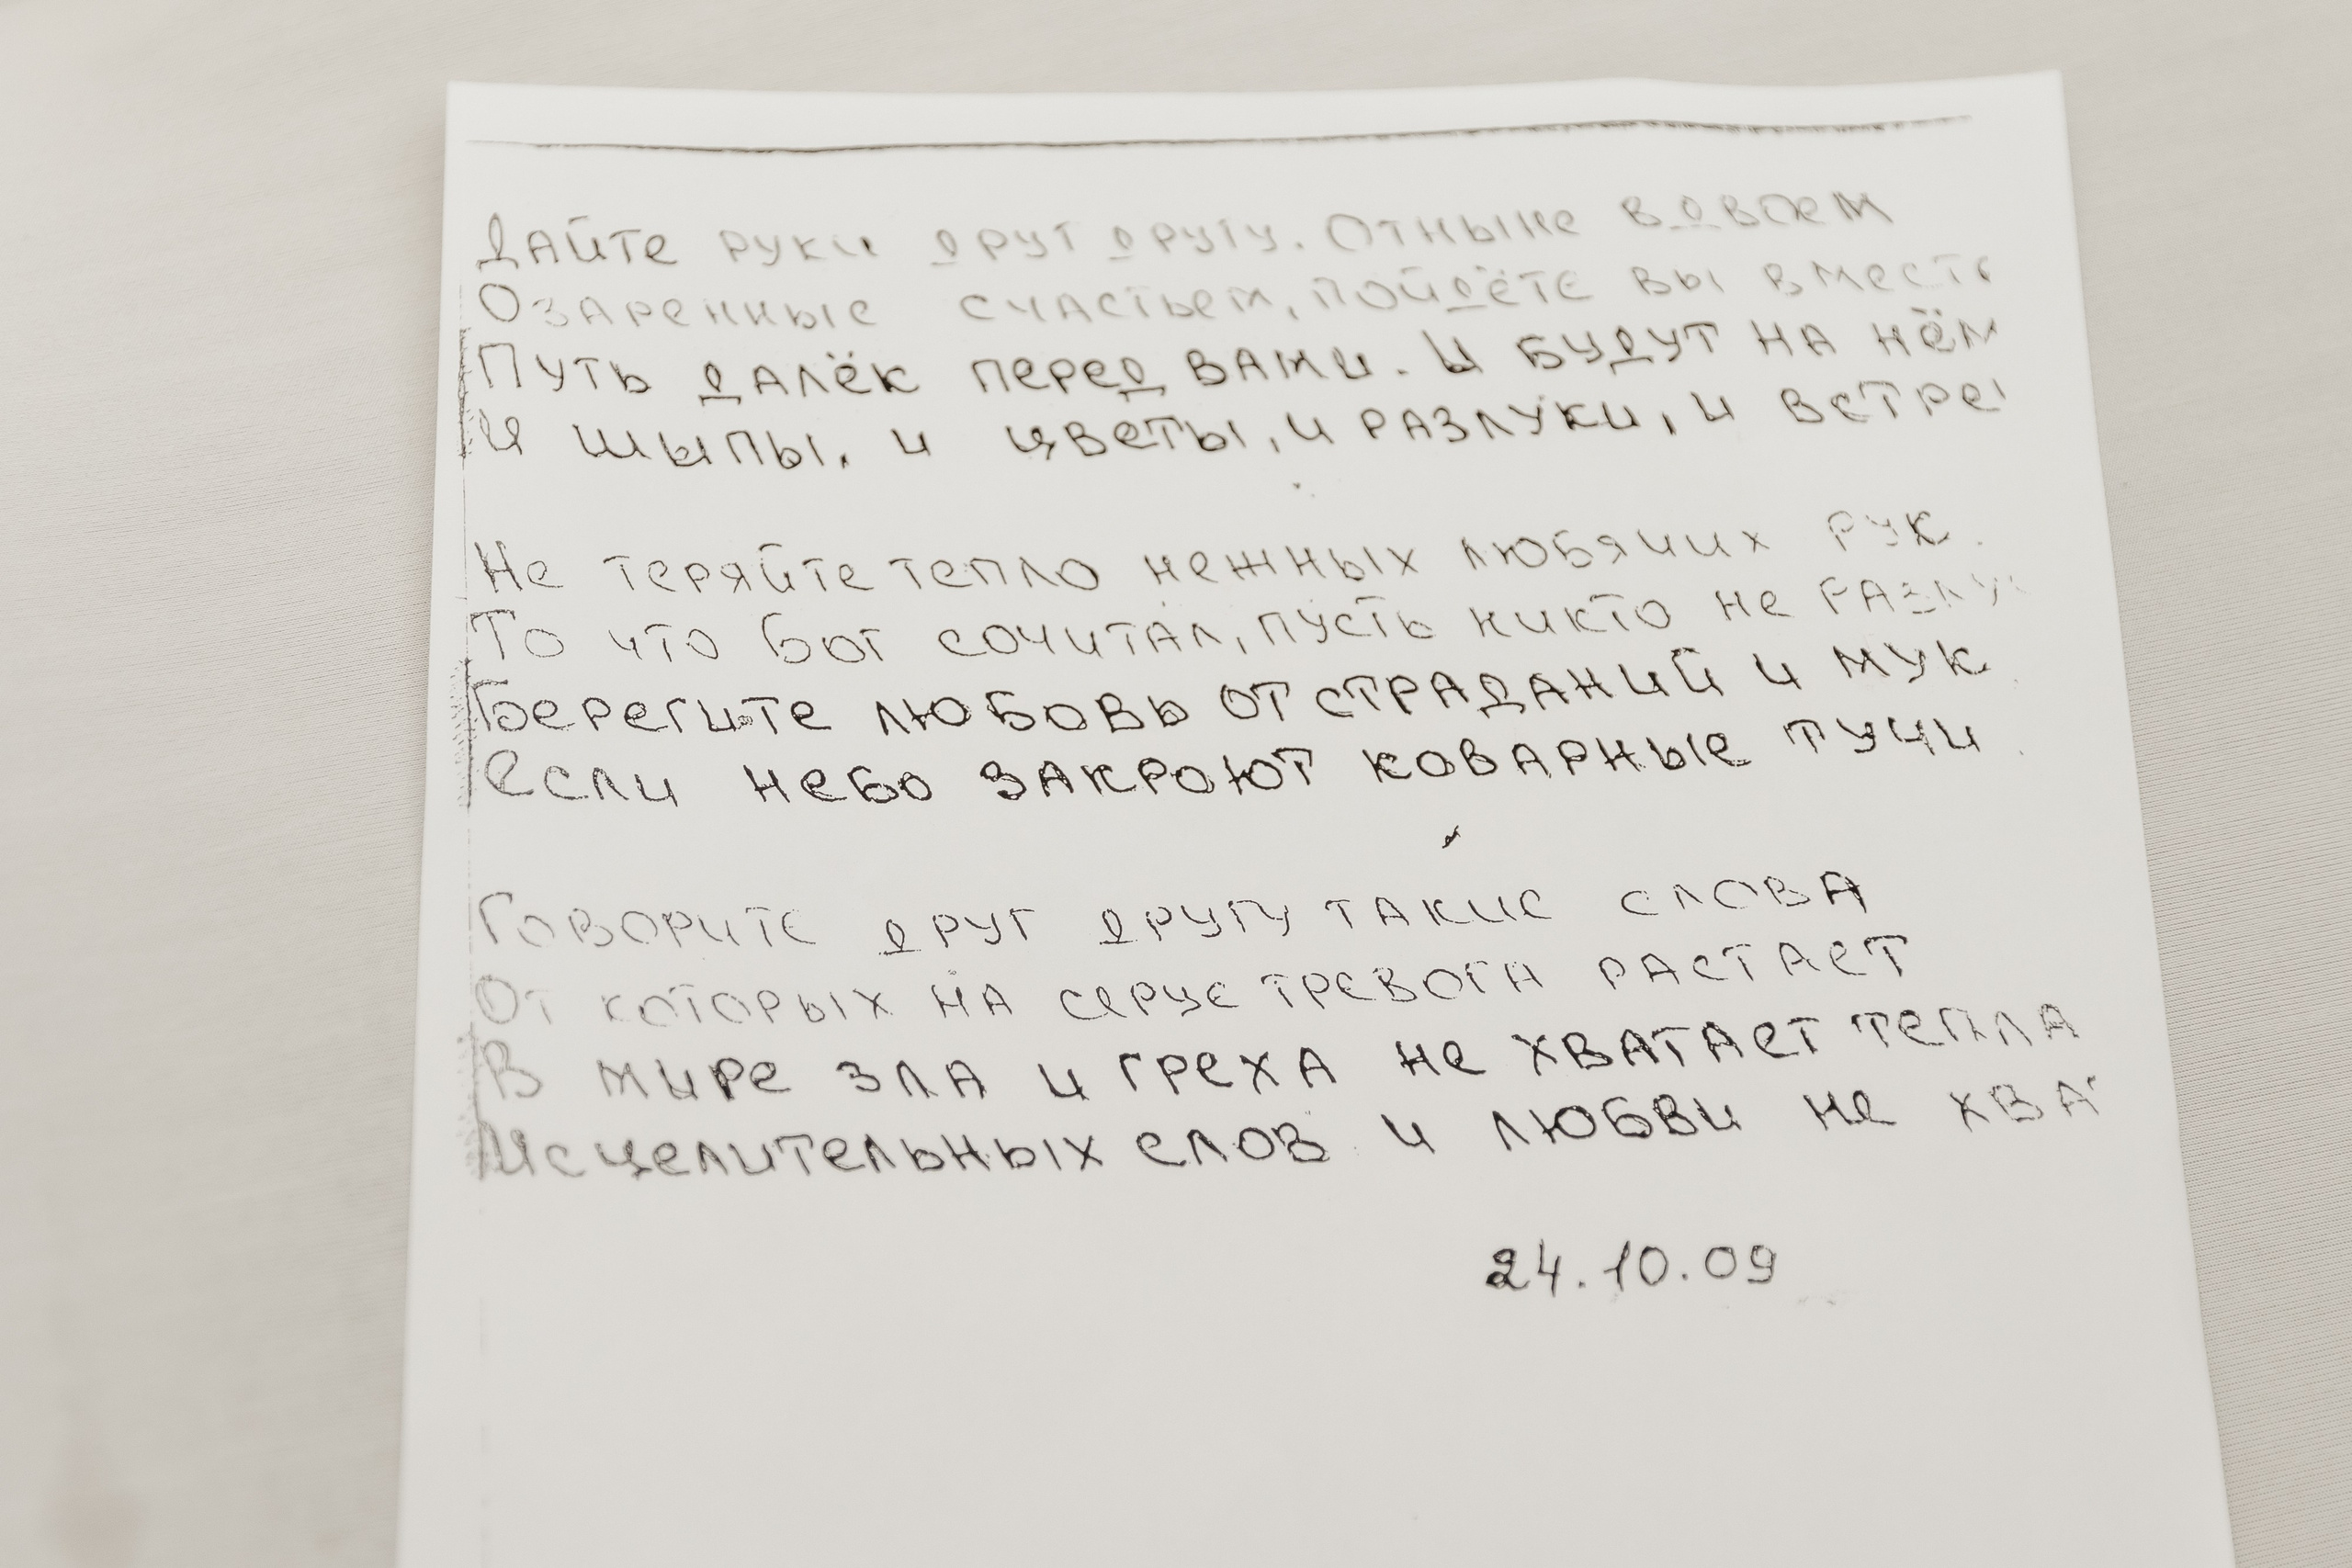 Дайте руки друг другу. Отныне вдвоем
Озаренные счастьем, пойдёте вы вместе
Путь далёк перед вами. И будут на нём
И шыпы, и цветы, и разлуки, и встре
Не теряйте тепло нежных любячих рук.
То что бог сочитал, пусть никто не разлу
Берегите любовь от страданий и мук
Если небо закроют коварные тучи.
Говорите друг другу такие слова
От которых на серце тревога растает
В мире зла и греха не хватает тепла
Исцелительных слов и любви не хва
24.10.09